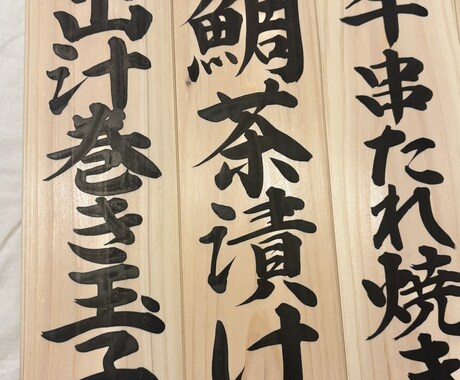 牛串たれ焼き
鯛茶漬け
出汁巻き玉子